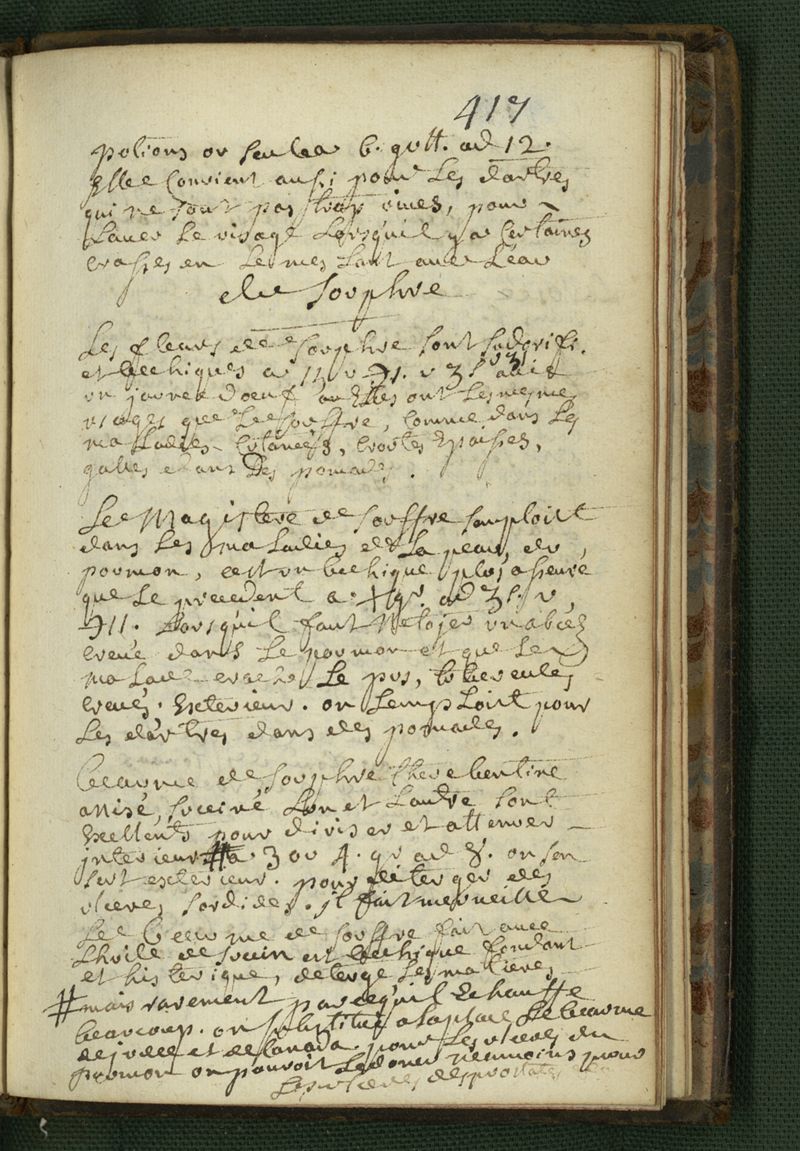 417
potions ou seulle 6. gutt. ad 12.
Elle Convient aussi pour Les dartres
qui ne sont pas trop vives, pour
Laver Le visage Lorsquil y a Certaines
crasses en Les mes Lant avec Leau
de sorphre
Les fleurs de sorphre sont sudorifi.
et bechiques a
un jaune doeuf Elles ont Les mesme
usages que Le soffre, Comme dans Les
maladies Cutanées, Croutes Epaisses,
galles dans Des pomades.
Le Magistere de soffre semploist
dans Les maladies de La peau, du
poumon, cest un bechique plus asseuré
que Le precedent a. gr. ad
Lorsquil faut Netojer un abcez
creué dans Le poumon et que Le
malade crache Le pus, tubercules
creués. Exterieur. on Lemploist pour
Les dartres dans des pomades.
beaume de sorphre therebentiné
anisé, succiné Lun et Lautre sont
Exellents pour diviser et attenuer
jnterieur # a. 3 ou 4. gr ad 8. on sen
sert exterieur. pour deterger des
ulceres sordides. jl fait merveille
Le beaume de soffre fait avec
Lhuile de succin est bechique fondant
et histerique, deterge Les matieres
# mais rarement parcequil Echauffe
beaucoup. on substitue a sa place Le beaume
de judée et de Canada. pour Les ulceres du
poumon on pouroit Le doner neanmoins pour
Les ulceres des prostates